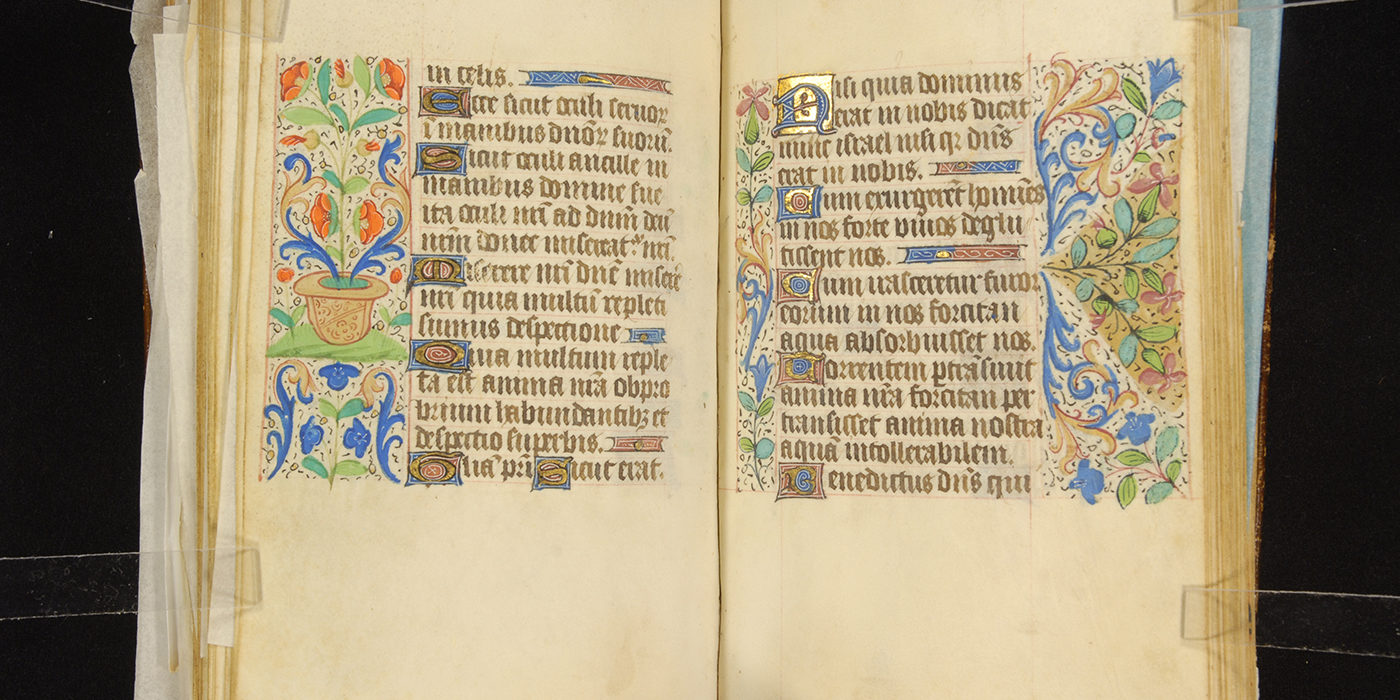 in celis.
Ecce sicut oculi servoꝝ
ĩ manibus dnõꝝ suorũ.
Sicut oculi ancille in
manibus domine sue
ita oculi nr̃i ad dnũm deũ
nr̃m donec misereatᷣ nr̃i.
Miserere nr̃i dñe misere
nr̃i quia multũ repleti
sumus despectione
Quia multum reple
ta est anima nr̃a obpro
brium habundantibꝫ et
despectio superbis.
Gl̃a pr̃i Sicut erat.
Nisi quia dominus
erat in nobis dicat
nunc israel nisi qr dñs
erat in nobis.
Cum exurgerẽt homĩes
in nos forte vivos deglu
tissent nos.
Cum irasceretur furor
eorum in nos forcitan
aqua absorbuisset nos.
Torrentem ꝑtrãsivit
anima nr̃a forcitan per
transisset anima nostra
aquã intollerabilem.
Benedictus dñs qui